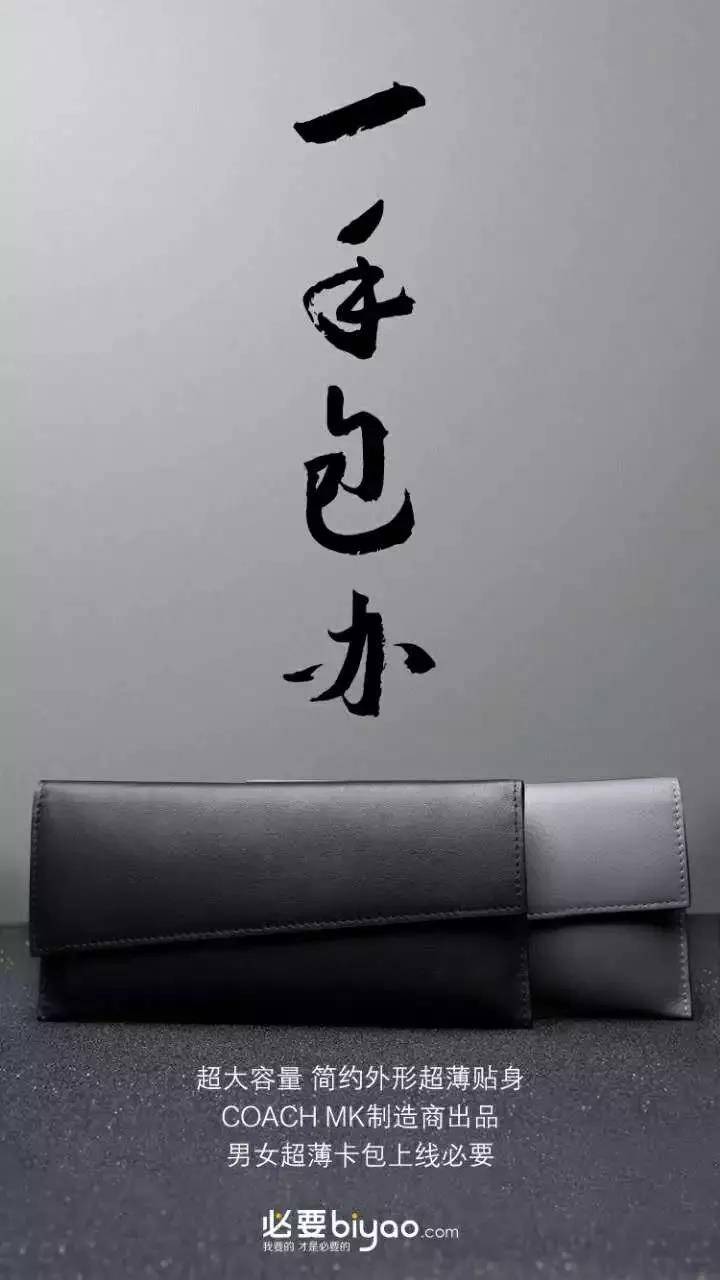 一手包办
超大容量 简约外形超薄贴身
COACH MK制造商出品
男女超薄卡包上线必要
必要biyao.com
我要的 才是必要的